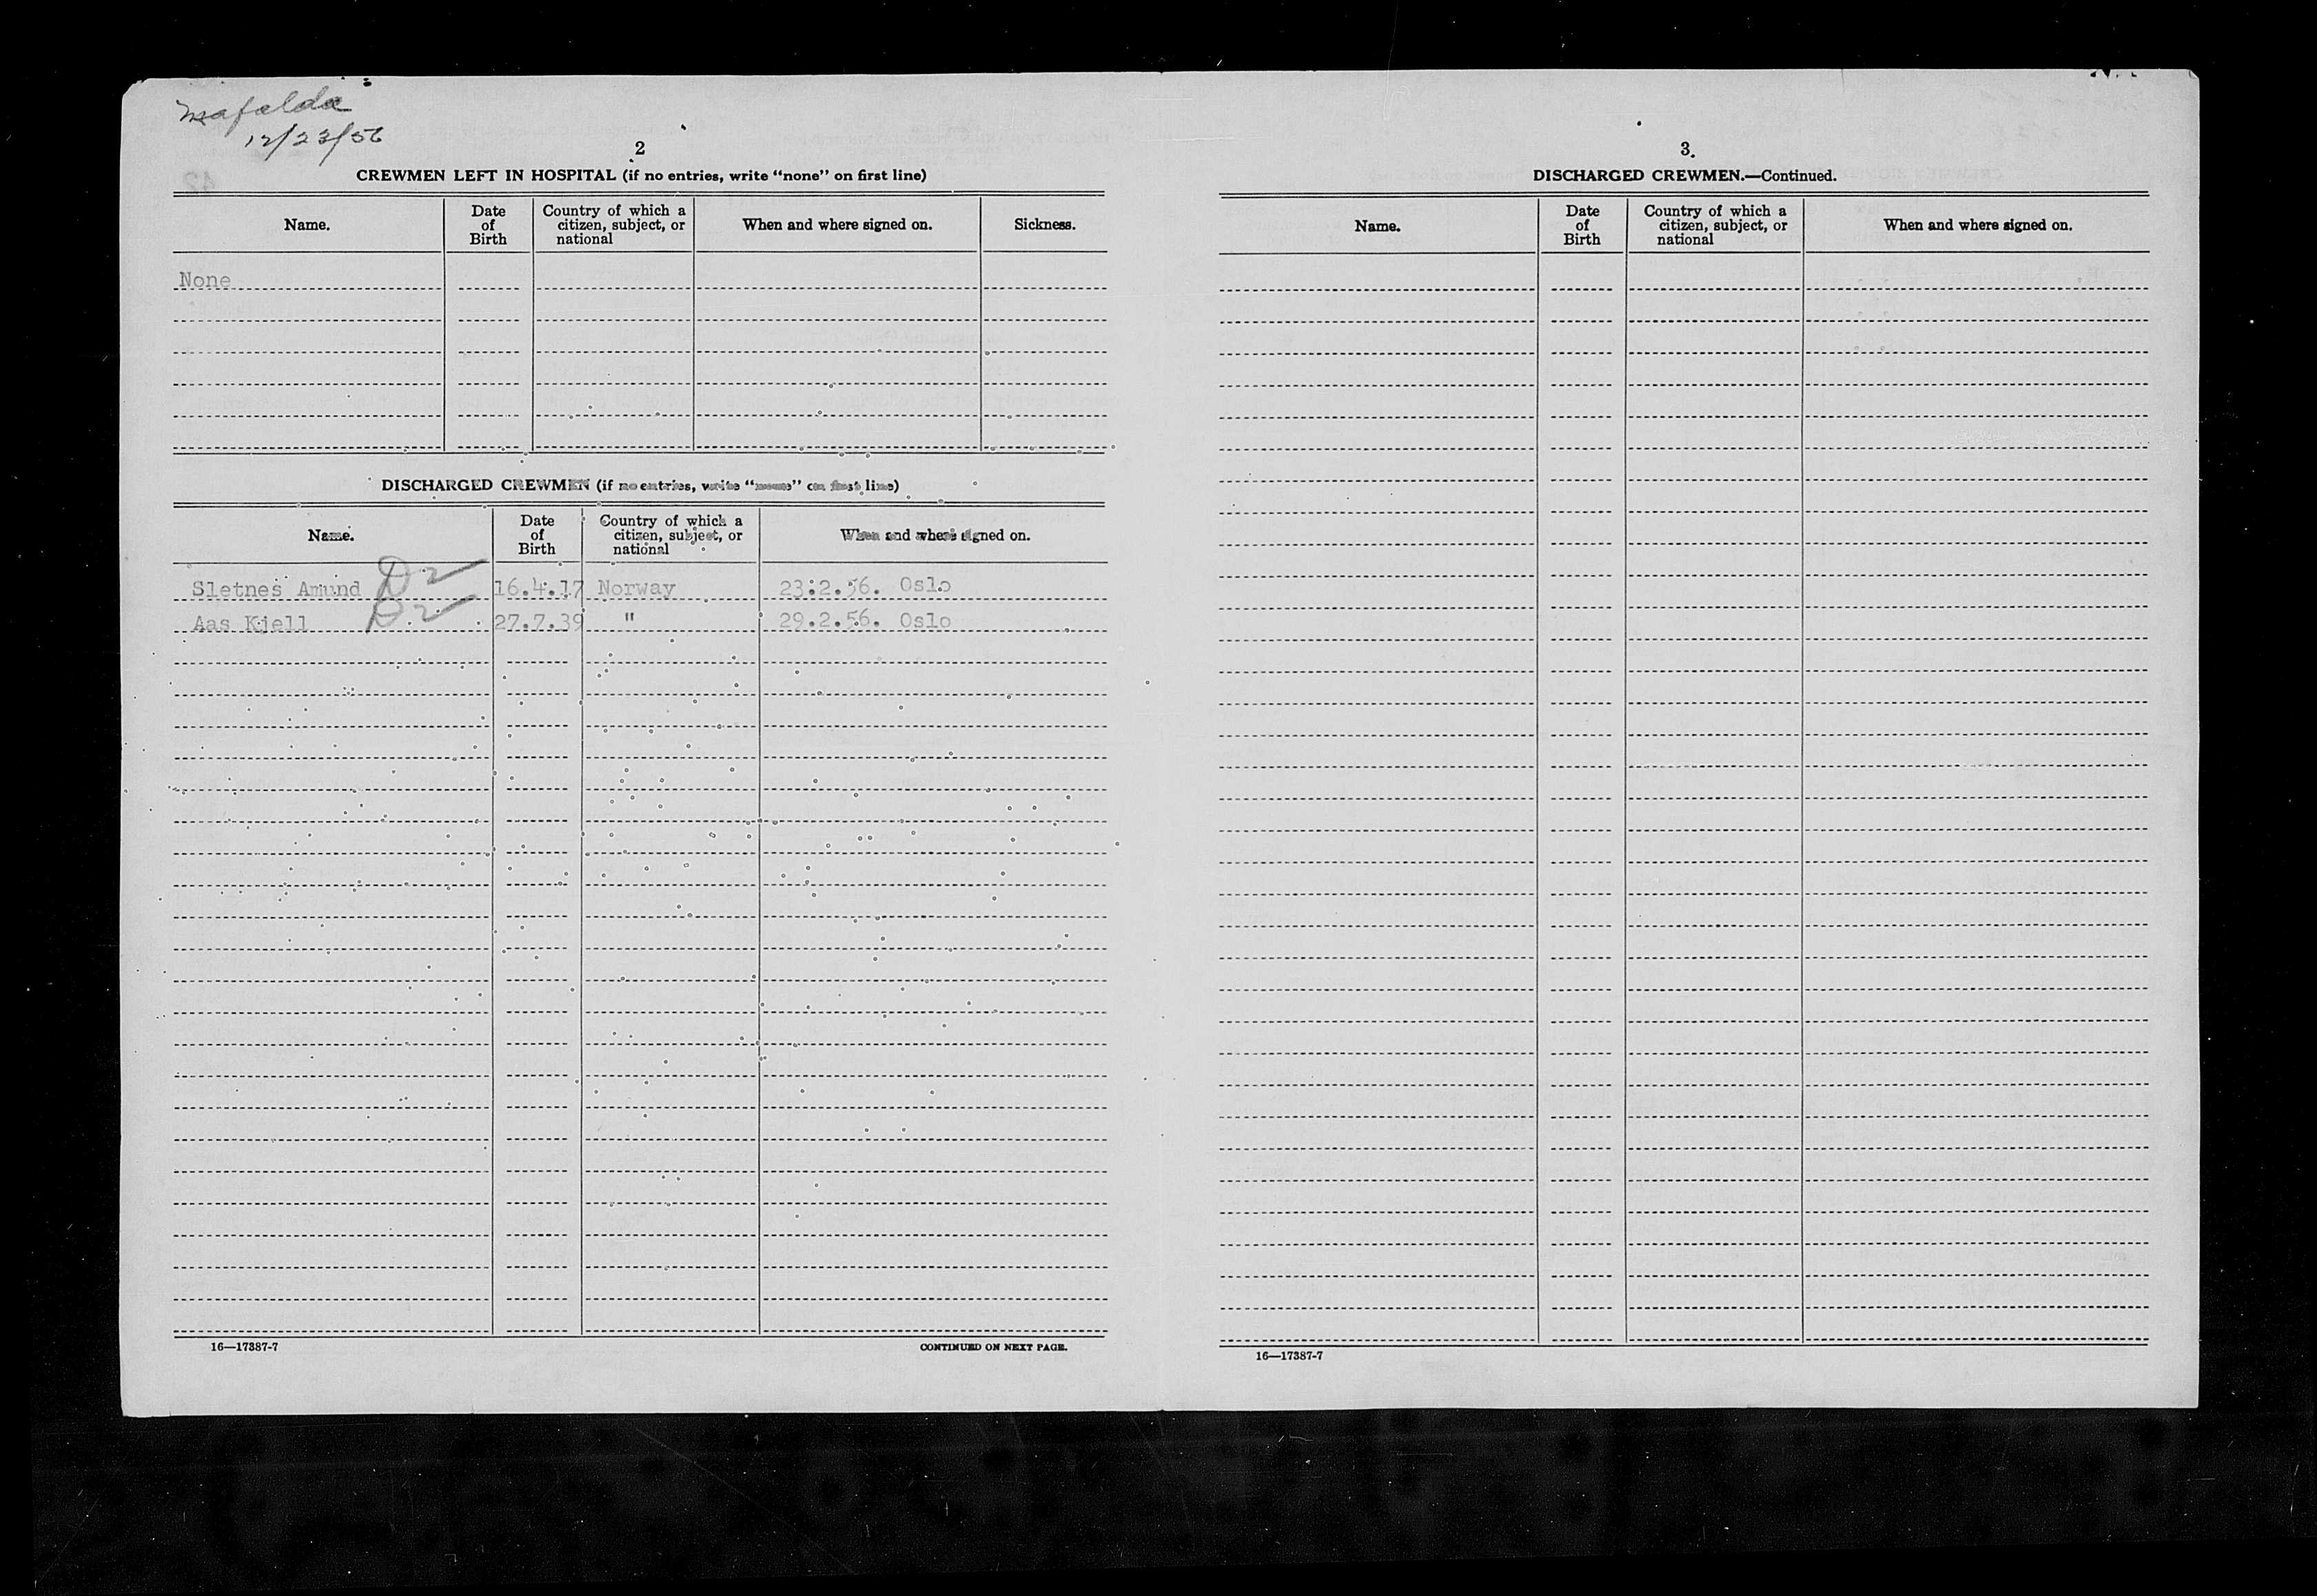 Mafalda
12/23/56
2
CREWMEN LEFT IN HOSPITAL (if no entries, write "none" on first line)
Name. Date of Birth Country of which a citizen, subject, or national When and where signed on. Sickness.
None
DISCHARGED CREWMEN (if no entries, write "none" on first line)
Name. Date of Birth Country of which a citizen, subject, or national When and where signed on.
Sletnes Amund D2 16.4.17 Norway 23.2.56. Oslo
Aas Kjell D2 27.7.39 " 29.2.56. Oslo
16—17387-7 CONTINUED ON NEXT PAGE.
3.
DISCHARGED CREWMEN.—Continued.
Name. Date of Birth Country of which a citizen, subject, or national When and where signed on.
16—17387-7